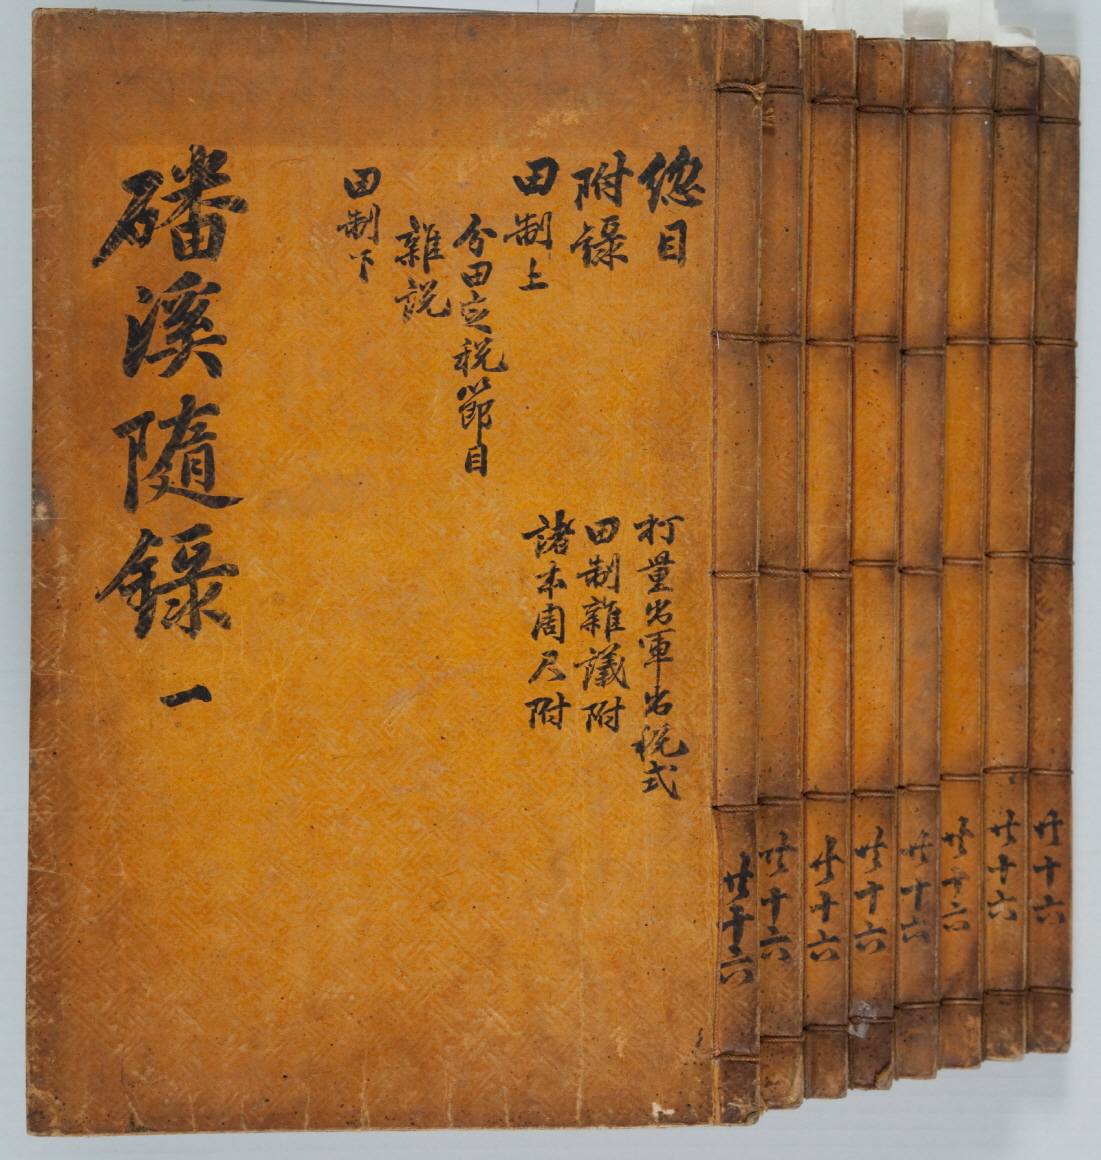 磻溪隨錄 一
總目
附錄
田制上
分田定税節目
雜説
田制下
打量出軍出税式
田制雜議附
諸本周尺附
共十六
共十六
共十六
共十六
共十六
共十六
共十六
共十六